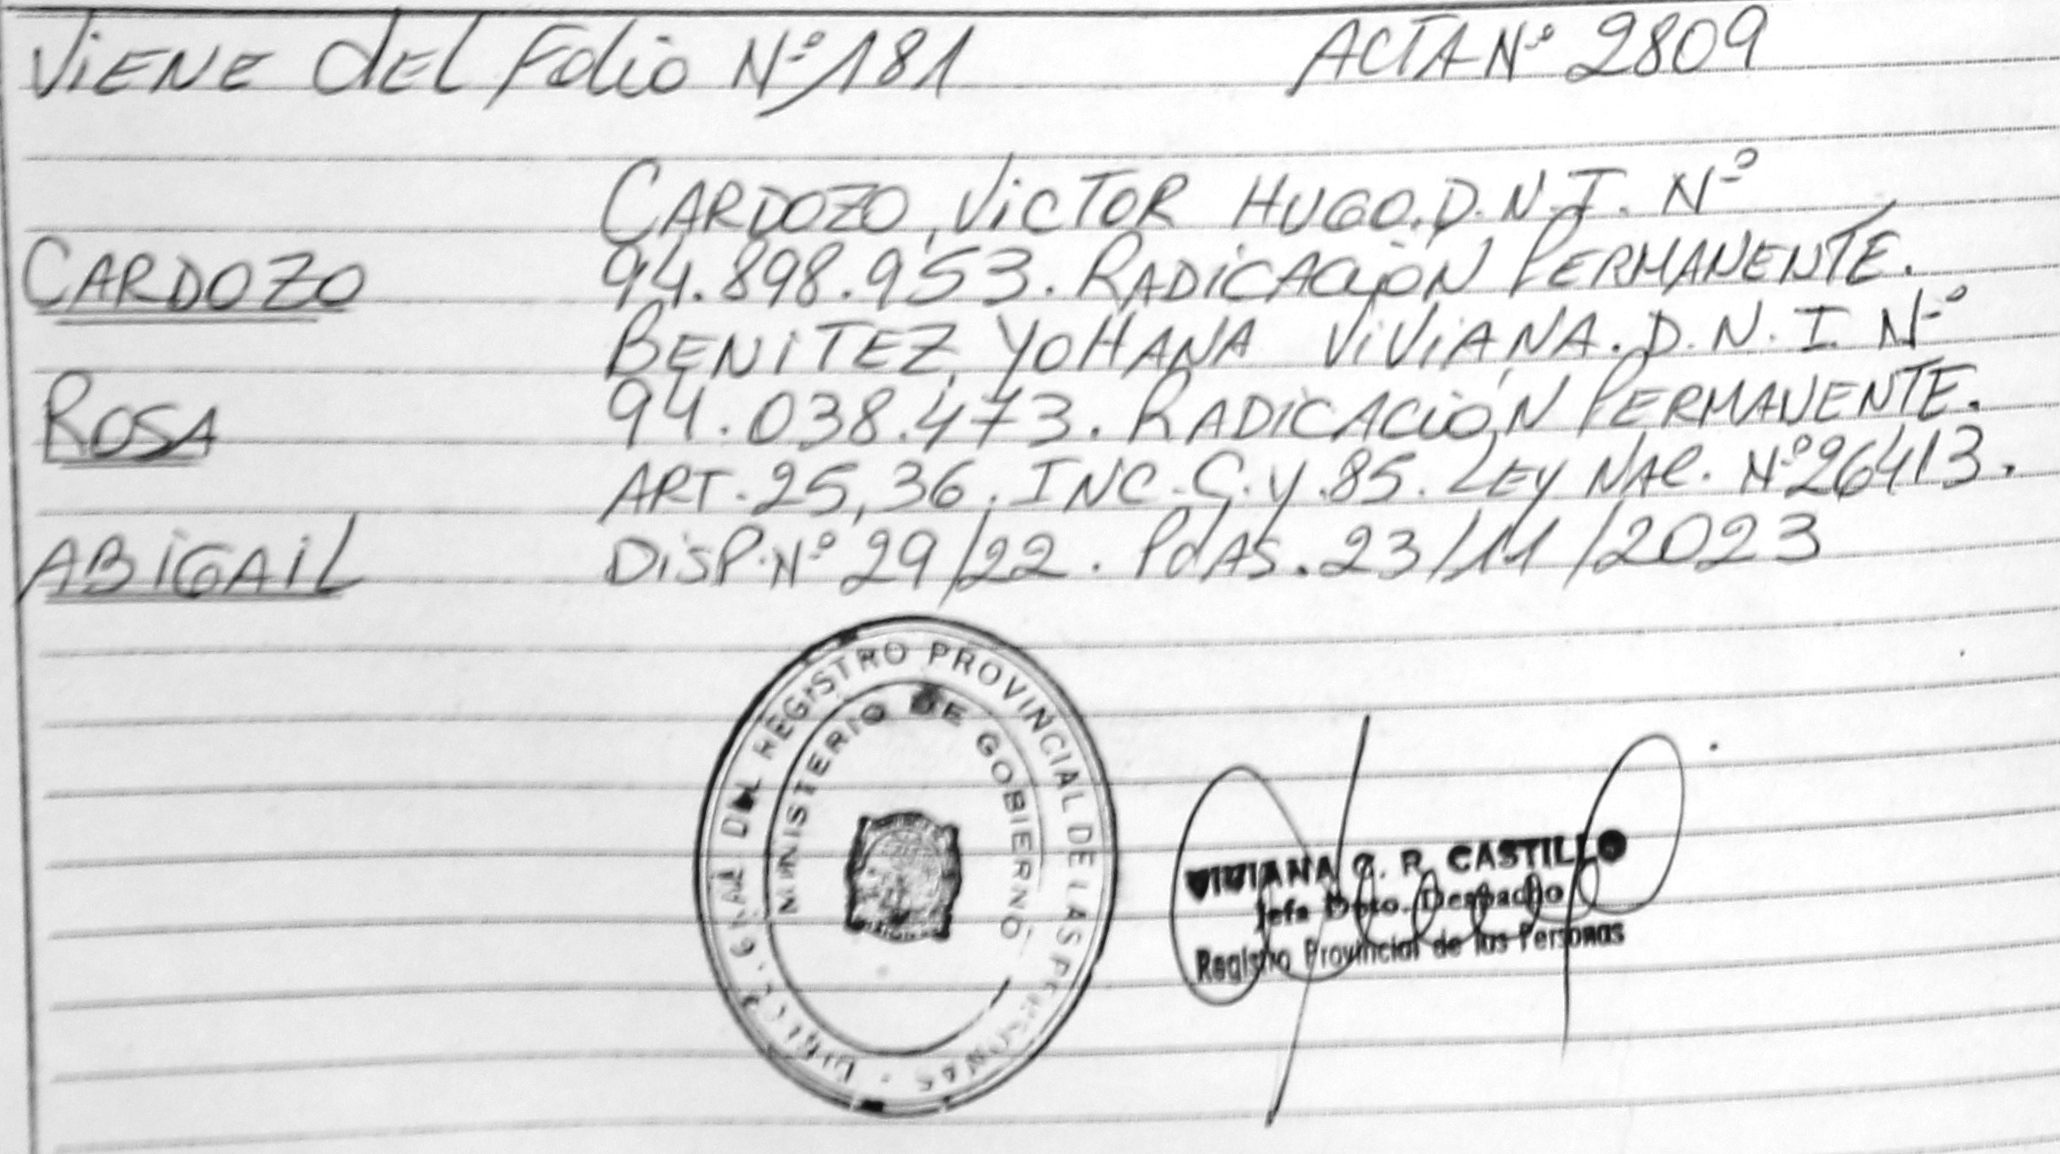 ViENE dEL Folio Nº 181 ACTA Nº 2809
CARDOZO, ViCTOR HUGO. D.N.I. Nº
CARDOZO 94.898.953. RADiCACiÓN PERMANENTE.
BENiTEZ, YOHANA ViViANA. D.N.I. Nº
ROSA 94.038.473. RADiCACiÓN PERMANENTE.
ART. 25, 36. INC. C. y. 85. LEy NAC. Nº 26413.
ABiGAiL DiSP. Nº 29/22. PdAS. 23/11/2023
REGISTRO PROVINCIAL DE LAS PERSONAS
MINISTERIO DE GOBIERNO
VIVIANA G. R. CASTILLO
Jefa Dpto. Despacho
Registro Provincial de las Personas